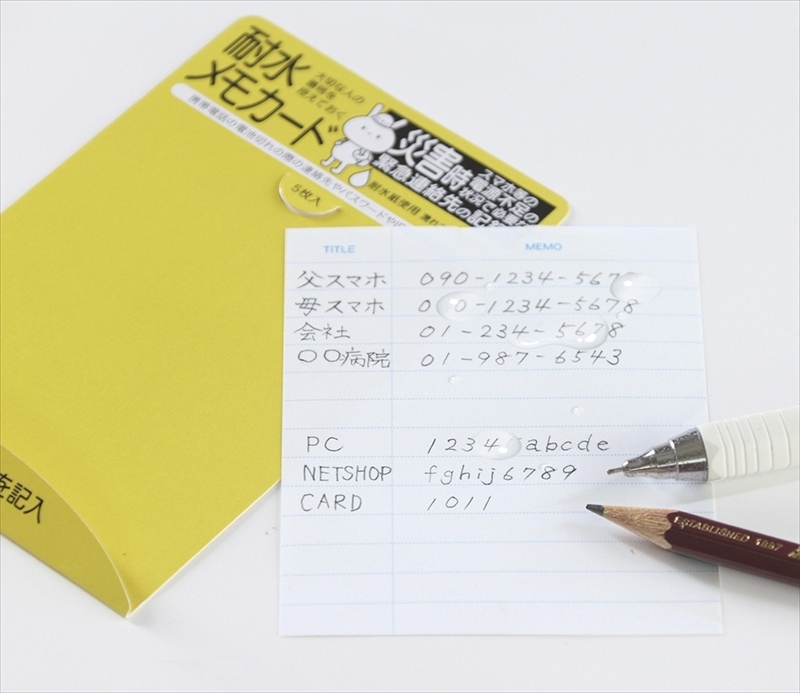 耐水
メモカード
大切な人の
連絡を
控えておく
災害時
スマホ等の
電源不足の
状況で必要な
緊急連絡先の記
携帯電話の電池切れの際の連絡先やパスワードやI
耐水紙使用 濡れ
5枚入
を記入
TITLE MEMO
父スマホ 090-1234-567
母スマホ 0 0-1234-5678
会社 01-234-5678
〇〇病院 01-987-6543
PC 1234 abcde
NETSHOP fghij6789
CARD 1011
ESTABLISHED 1887